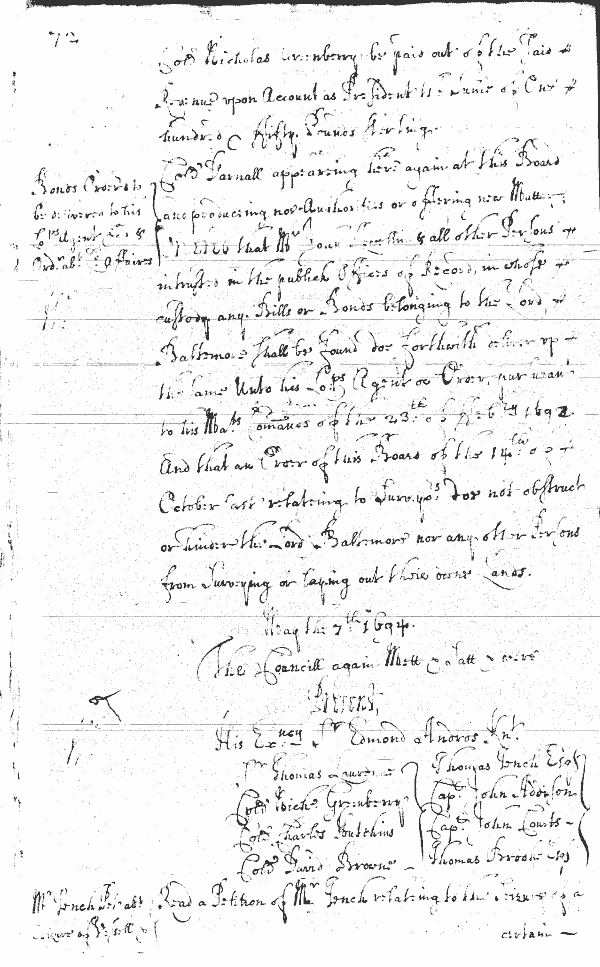 72
Coll Nicholas Greenberry be paid out of the Said
Revenue upon Account as President the Sume of One
hundred & fifty Pounds Sterling.
Coll Darnall appearing here again at this Board
and producing noe Authorities or offering new Matter,
Bonds Ordered to
be delivered to his
Lopps Agent
Ordered that Mr John Llewellin & all other Persons
intrusted in the publick Offices of Record, in whose
custody any Bills or Bonds belonging to the Lord
Baltemore shall be found doe forthwith deliver up
the same Unto his Lopps Agent or Order, pursuant
to his Matys Comands of the 23th of Feb 1692.
And that an Order of this Board of the 14th of
October last relating to Surveyrs doe not obstruct
or hinder the Lord Baltemore nor any other Persons
from Surveying or laying out their owne Lands.
May the 7th 1694.
The Councill again Mett & Satt & were
Present,
His Exncy Sr Edmond Andros Knt.
Sr Thomas Laurence
Coll Nicho Greenberry
Coll Charles Hutchins
Coll David Browne
Thomas Tench Esqr
Capt John Addison
Capt John Courts
Thomas Brooke Esqr
Mr Tench Pet abt
Seizure of
Read a Petition of Mr Tench relating to the Seizure of a
certain